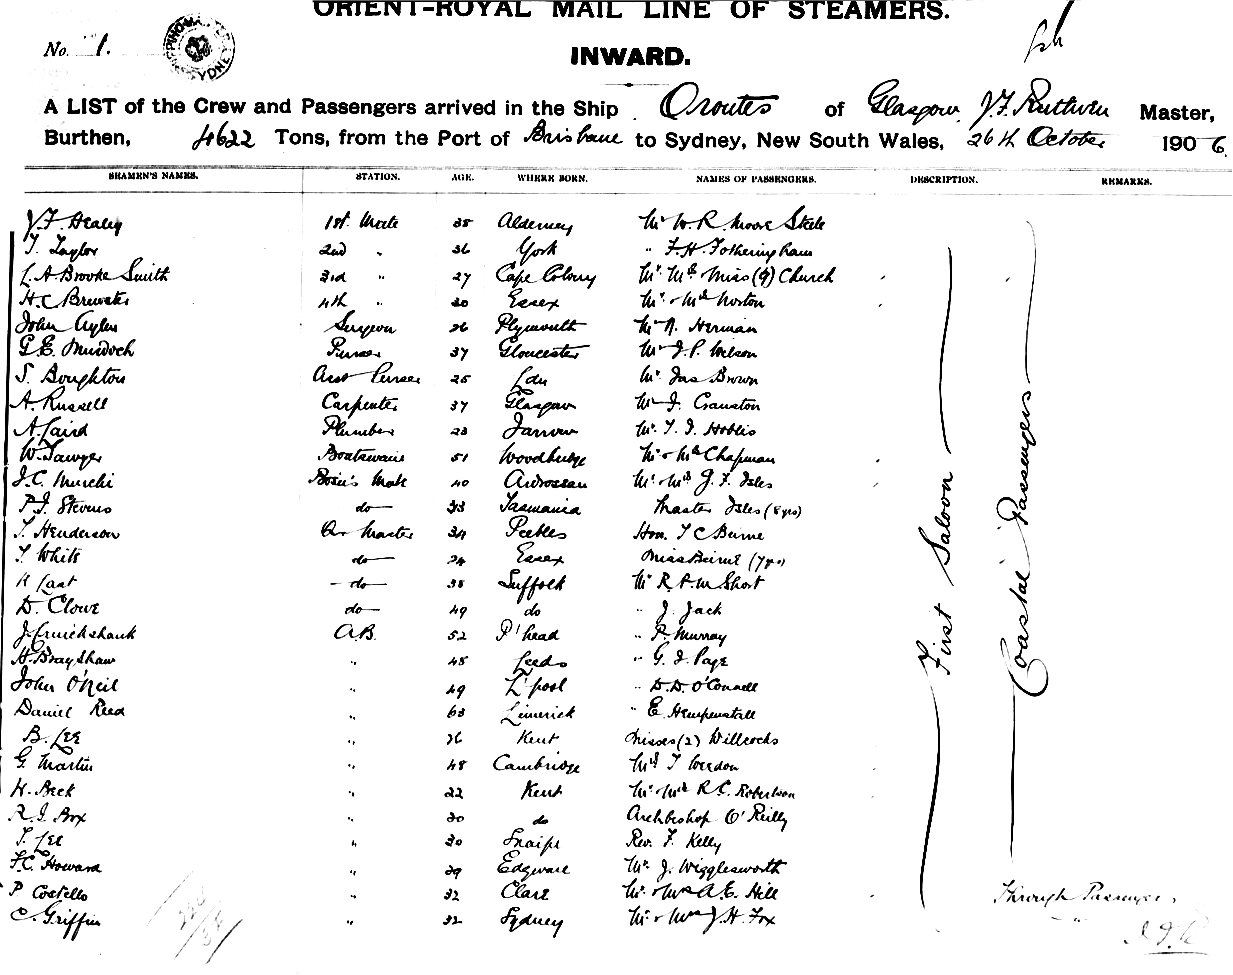 ORIENT-ROYAL MAIL LINE OF STEAMERS.
No. 1.
INWARD.
A LIST of the Crew and Passengers arrived in the Ship Oroutes of Glasgow, J.F. Ruthven Master,
Burthen, 4622 Tons, from the Port of Brisbane to Sydney, New South Wales, 26th October 1906.
SEAMEN'S NAMES. STATION. AGE. WHERE BORN. NAMES OF PASSENGERS. DESCRIPTION. REMARKS.
J.F. Healey 1st Mate 38 Alderney Mr W.R. Moore Steele
T. Taylor 2nd " 36 York " F.H. Fotheringham
L.A. Brooke Smith 3rd " 27 Cape Colony Mr. Mrs Miss (9) Church
H.C. Brewster 4th " 30 Essex Mr. & Mrs Norton
John Ayles Surgeon 26 Plymouth Mr A. Herman
G.E. Murdoch Purser 37 Gloucester Mr J.P. Wilson
S. Boughton Asst Purser 25 Ldn Mr. Jas Brown
A. Russell Carpenter 37 Glasgow Mr J. Cranston
A. Laird Plumber 23 Jarrow Mr. T.J. Hobbs
W. Sawyer Boatswain 51 Woodbridge Mr & Mrs Chapman
J.C. Murchi Bosn's Mate 40 Ardrossan Mr. Mrs J.F. Isles
P.J. Stevens do 33 Tasmania Master Isles (8 yrs)
T. Henderson Qr Master 34 Peebles Hon. T C Beirne
T. White do 24 Essex Miss Beirne (7 yrs)
R Last do 38 Suffolk Mr R.A.M. Short
D. Clowe do 49 do " J. Jack
J. Cruickshank A.B. 52 P'head " P. Murray
H. Brayshaw " 48 Leeds " G.J. Page
John O'Neil " 49 L'pool " D.D. O'Connell
Daniel Reed " 63 Limerick " E. Hempenstall
B. Lee " 26 Kent Misses (2) Willcocks
G. Martin " 48 Cambridge Mrs T Weedon
H. Beck " 22 Kent Mr. & Mrs R.C. Robertson
R.J. Box " 30 do Archbishop O'Reilly
T. Lee " 30 Snaipe Rev. F. Kelly
F.C. Howard " 29 Edgware Mr. J. Wigglesworth
P Costello " 32 Clare Mr. & Mrs A.E. Hill Through Passengers
C. Griffin " 32 Sydney Mr. & Mrs J.H. Fox "
First Saloon
Coastal Passengers